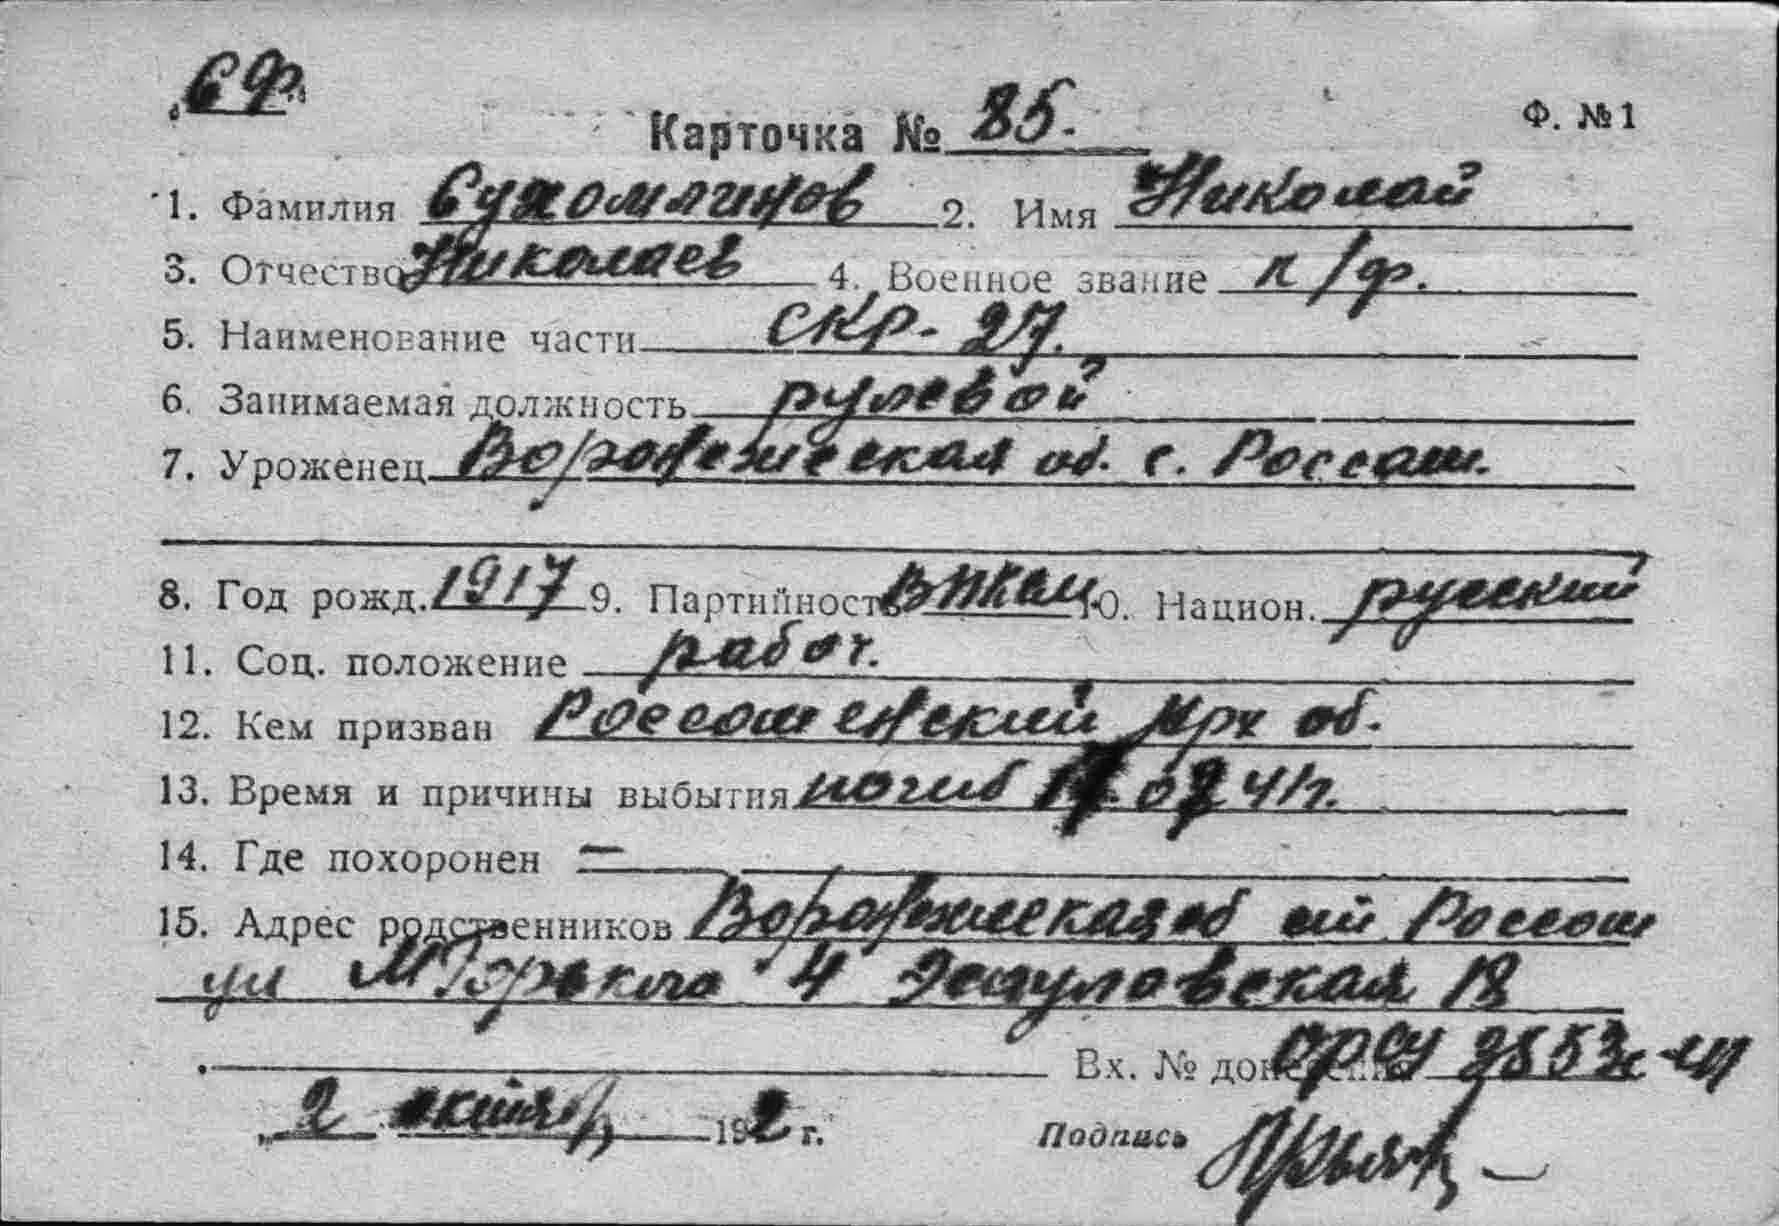 СФ
Карточка № 85. Ф. № 1
1. Фамилия Сухомлинов 2. Имя Николай
3. Отчество Николаев 4. Военное звание к/ф.
5. Наименование части СКР-27.
6. Занимаемая должность рулевой
7. Уроженец Воронежская об. с. Россаш.
8. Год рожд. 1917 9. Партийность ВЛКСМ 10. Национ. русский
11. Соц. положение работ.
12. Кем призван Россошенский об.
13. Время и причины выбытия погиб 41г.
14. Где похоронен —
15. Адрес родственников Воронежская об Россош
ул М Горького 4 18
Вх. № донесения 2553с
2 октября 192 г. Подпись